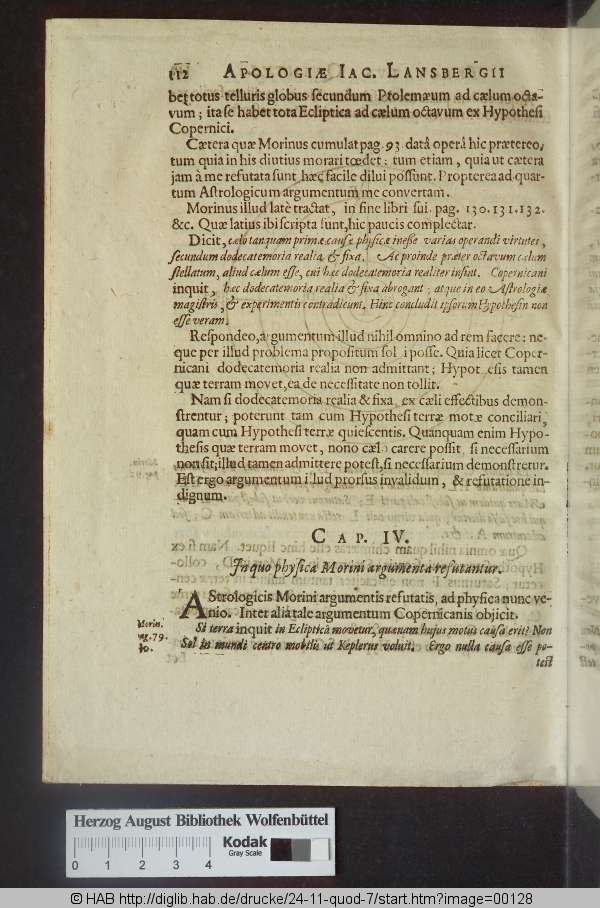 112 APOLOGIÆ IAC. LANSBERGII
bet totus telluris globus secundum Ptolemæum ad cælum octa-
vum; ita se habet tota Ecliptica ad cælum octavum ex Hypothesi
Copernici.
Cætera quæ Morinus cumulat pag. 93. datâ operâ hîc prætereo,
tum quia in his diutius morari tœdet: tum etiam, quia ut cætera
jam à me refutata sunt, hæc facile dilui possunt. Propterea ad quar-
tum Astrologicum argumentum me convertam.
Morinus illud latè tractat, in fine libri sui, pag. 130. 131. 132.
&c. Quæ latius ibi scripta sunt, hic paucis complectar.
Dicit, cælo tanquam primæ causæ physicæ inesse varias operandi virtutes,
secundum dodecatemoria realia & fixa. Ac proinde præter octavum cælum
stellatum, aliud cælum esse, cui hæc dodecatemoria realiter insint. Copernicani
inquit, hæc dodecatemoria realia & fixa abrogant; atque in eo Astrologiæ
magistris, & experimentis contradicunt. Hinc concludit ipsorum Hypothesin non
esse veram.
Respondeo, a gumentum illud nihil omnino ad rem facere: ne-
que per illud problema propositum sol i posse. Quia licet Coper-
nicani dodecatemoria realia non admittant; Hypot esis tamen
quæ terram movet, ea de necessitate non tollit.
Nam si dodecatemoria realia & fixa ex cæli effectibus demon-
strentur; poterunt tam cum Hypothesi terræ motæ conciliari,
quam cum Hypothesi terræ quiescentis. Quanquam enim Hypo-
thesis quæ terram movet, nono cælo carere possit, si necessarium
non sit; illud tamen admittere potest, si necessarium demonstretur.
Est ergo argumentum illud prorsus invalidum, & refutatione in-
dignum.
CAP. IV.
In quo physica Morini argumenta refutantur.
AStrologicis Morini argumentis refutatis, ad physica nunc ve-
nio. Inter alia tale argumentum Copernicanis objicit.
Morin.
pag. 79.
Si terra inquit in Ecliptica movetur, quænam hujus motus causa erit? Non
Sol in mundi centro mobilis ut Keplerus voluit. Ergo nulla causa esse po-
test
Herzog August Bibliothek Wolfenbüttel
Kodak
Gray Scale
0 1 2 3 4
© HAB http://diglib.hab.de/drucke/24-11-quod-7/start.htm?image=00128